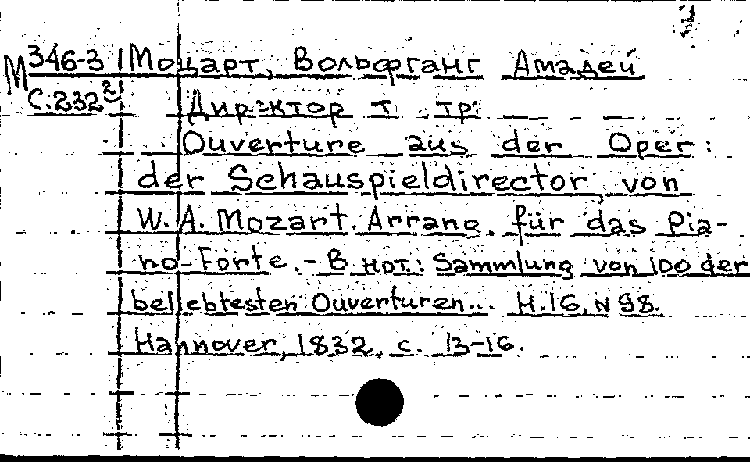 М 346-3 Моцарт, Вольфганг Амадей
С.232² Директор т тр
Ouverture aus der Oper:
der Schauspieldirector, von
W. A. Mozart. Arrang. für das Pia-
no-Forte. - В нот.: Sammlung von 100 der
beliebtesten Ouverturen... H.16, N 98.
Hannover, 1832, с. 13-16.